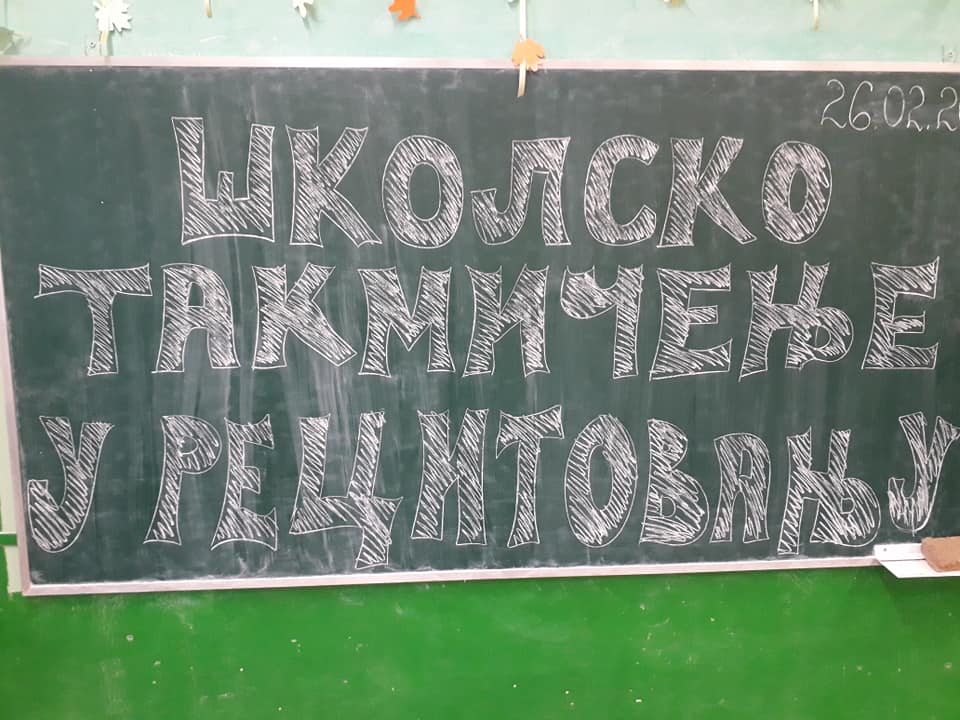 26.02.2
ШКОЛСКО
ТАКМИЧЕЊЕ
У РЕЦИТОВАЊУ